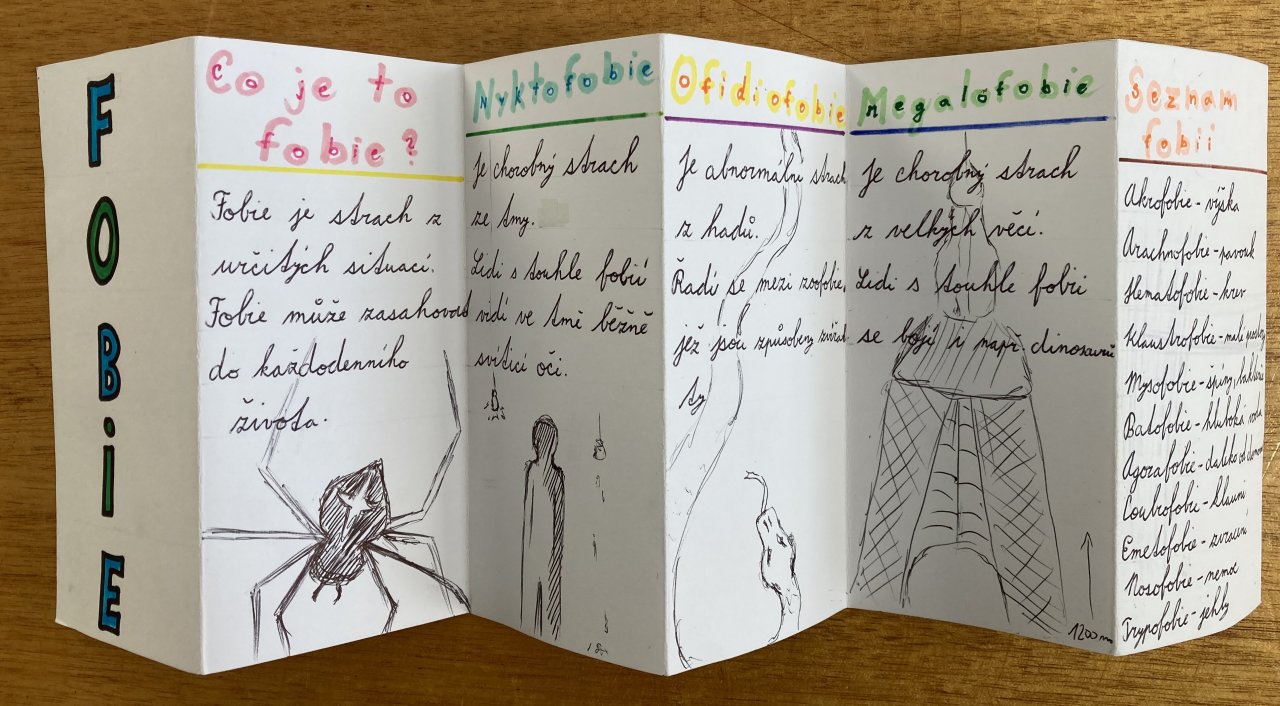 FOBiE
Co je to
fobie?
Fobie je strach z
určitých situací.
Fobie může zasahovat
do každodenního
života.
Nyktofobie
Je chorobný strach
ze tmy.
Lidi s touhle fobií
vidí ve tmě běžně
svítící oči.
Ofidiofobie
Je abnormální strach
z hadů.
Řadí se mezi zoofobie,
jež jsou způsobeny zvířa
ty
megalofobie
Je chorobný strach
z velkých věcí.
Lidi s touhle fobií
se bojí i např dinosaurů
1200m
Seznam
fobií
Akrofobie - výška
Arachnofobie - pavouk
Hematofobie - krev
Klaustrofobie - malé prostory
Mysofobie - špíny, bakterie
Batofobie - hluboká voda
Agorafobie - daleko od domova
Coulrofobie - klauni
Emetofobie - zvracení
Nosofobie - nemoc
Trypofobie - jehly